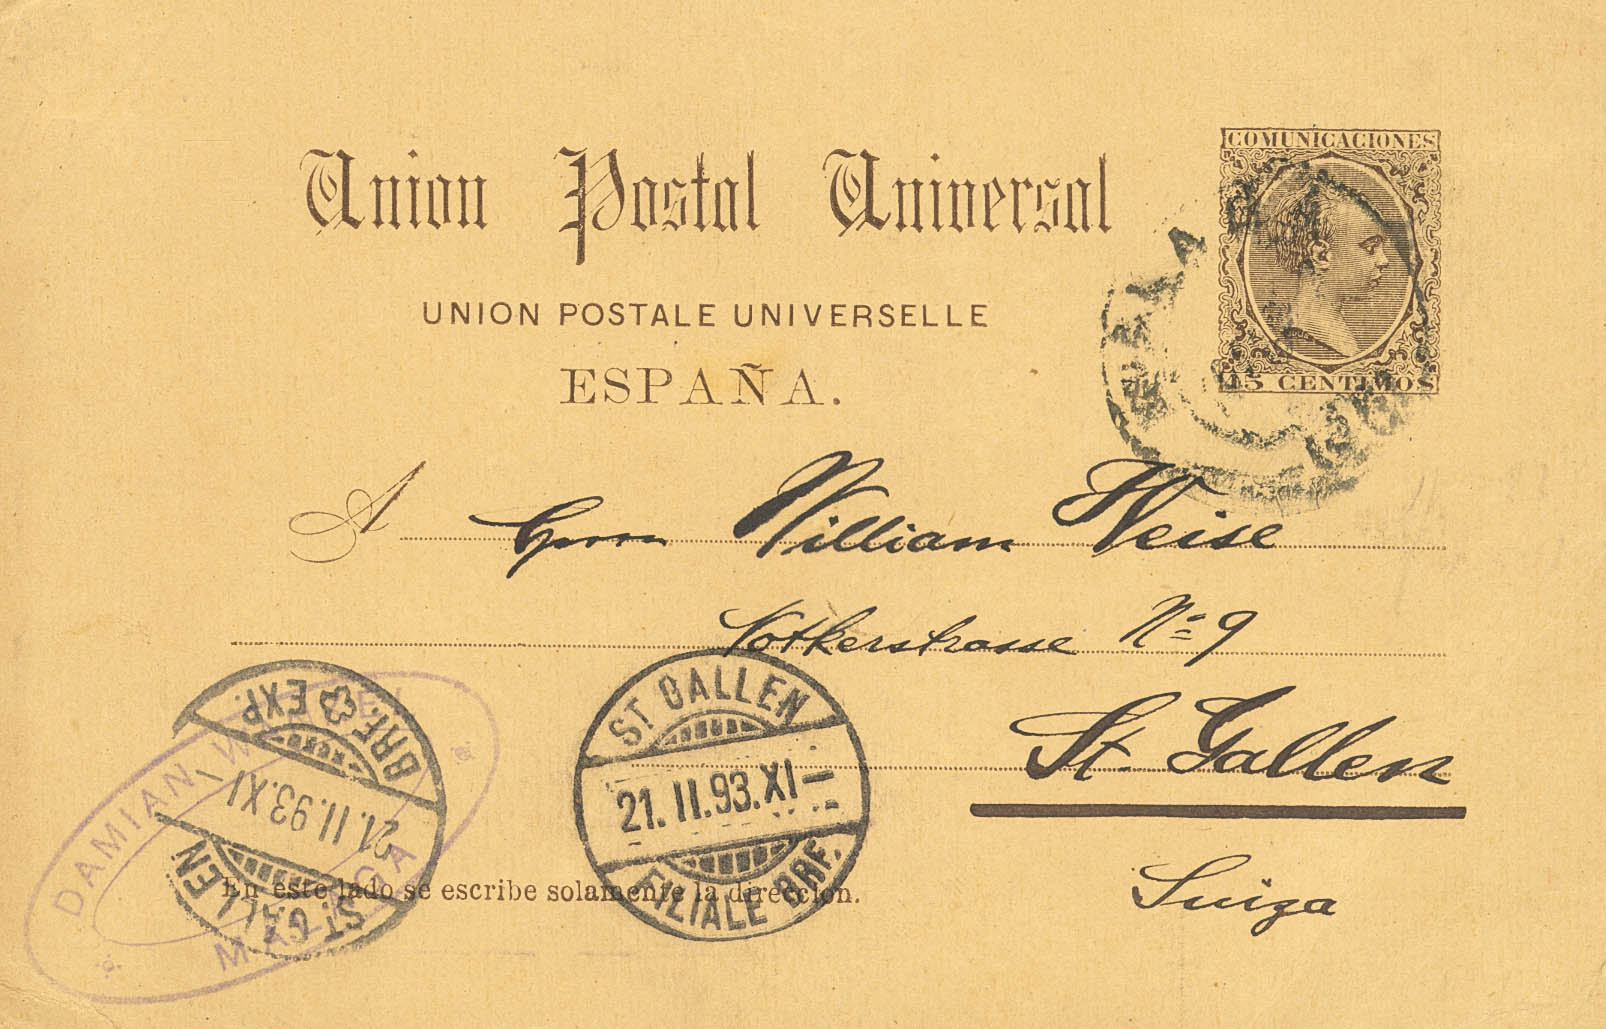 COMUNICACIONES
Union Postal Universal
UNION POSTALE UNIVERSELLE
ESPAÑA.
15 CENTIMOS
A Herrn William Weise
Notkerstrasse No 9
St. Gallen
Suiza
BRF. EXP.
21.II.93.XI
ST. GALLEN
ST. GALLEN
21.II.93.XI—
FILIALE BRF.
DAMIAN
MALAGA
En este lado se escribe solamente la direccion.